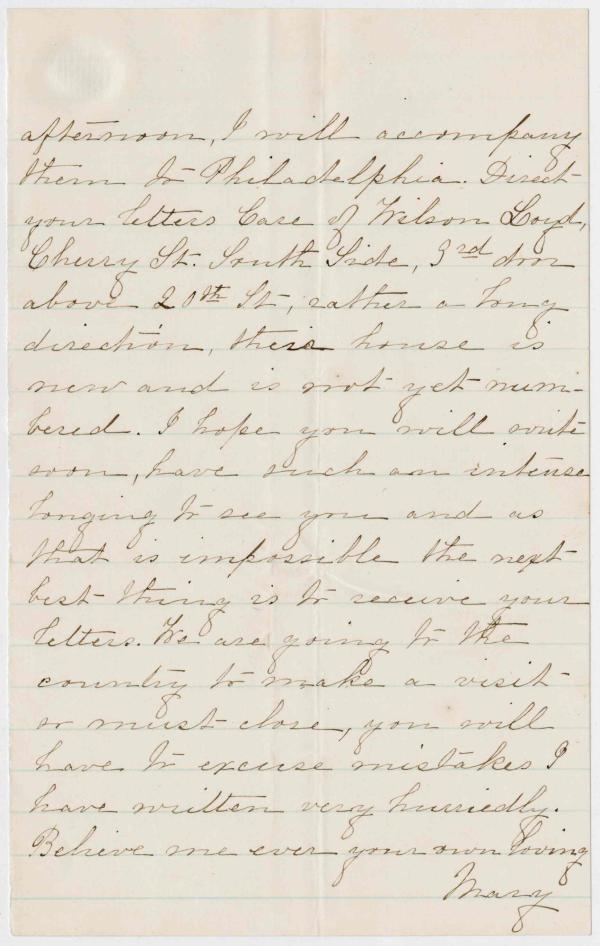 afternoon, I will accompany
them to Philadelphia. Direct
your letters Care of Wilson Loyd,
Cherry St. South Side, 3rd door
above 20th St, rather a long
direction, their house is
new and is not yet num-
bered. I hope you will write
soon, have such an intense
longing to see you and as
that is impossible the next
best thing is to receive your
letters. We are going to the
country to make a visit
so must close, you will
have to excuse mistakes I
have written very hurriedly.
Believe me ever your own loving
Mary